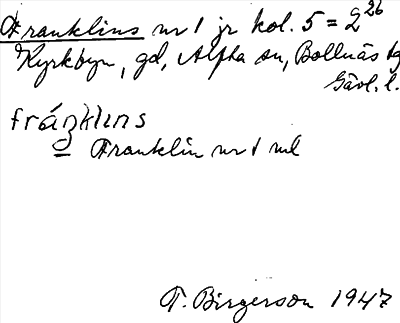 Franklins nr 1 jr kol. 5 = 2 26
Kyrkbyn, gd, Alfta sn, Bollnäs tg
Gävl. l.
fráŋklɩns
= Franklin nr 1 ml
T. Birgerson 1947